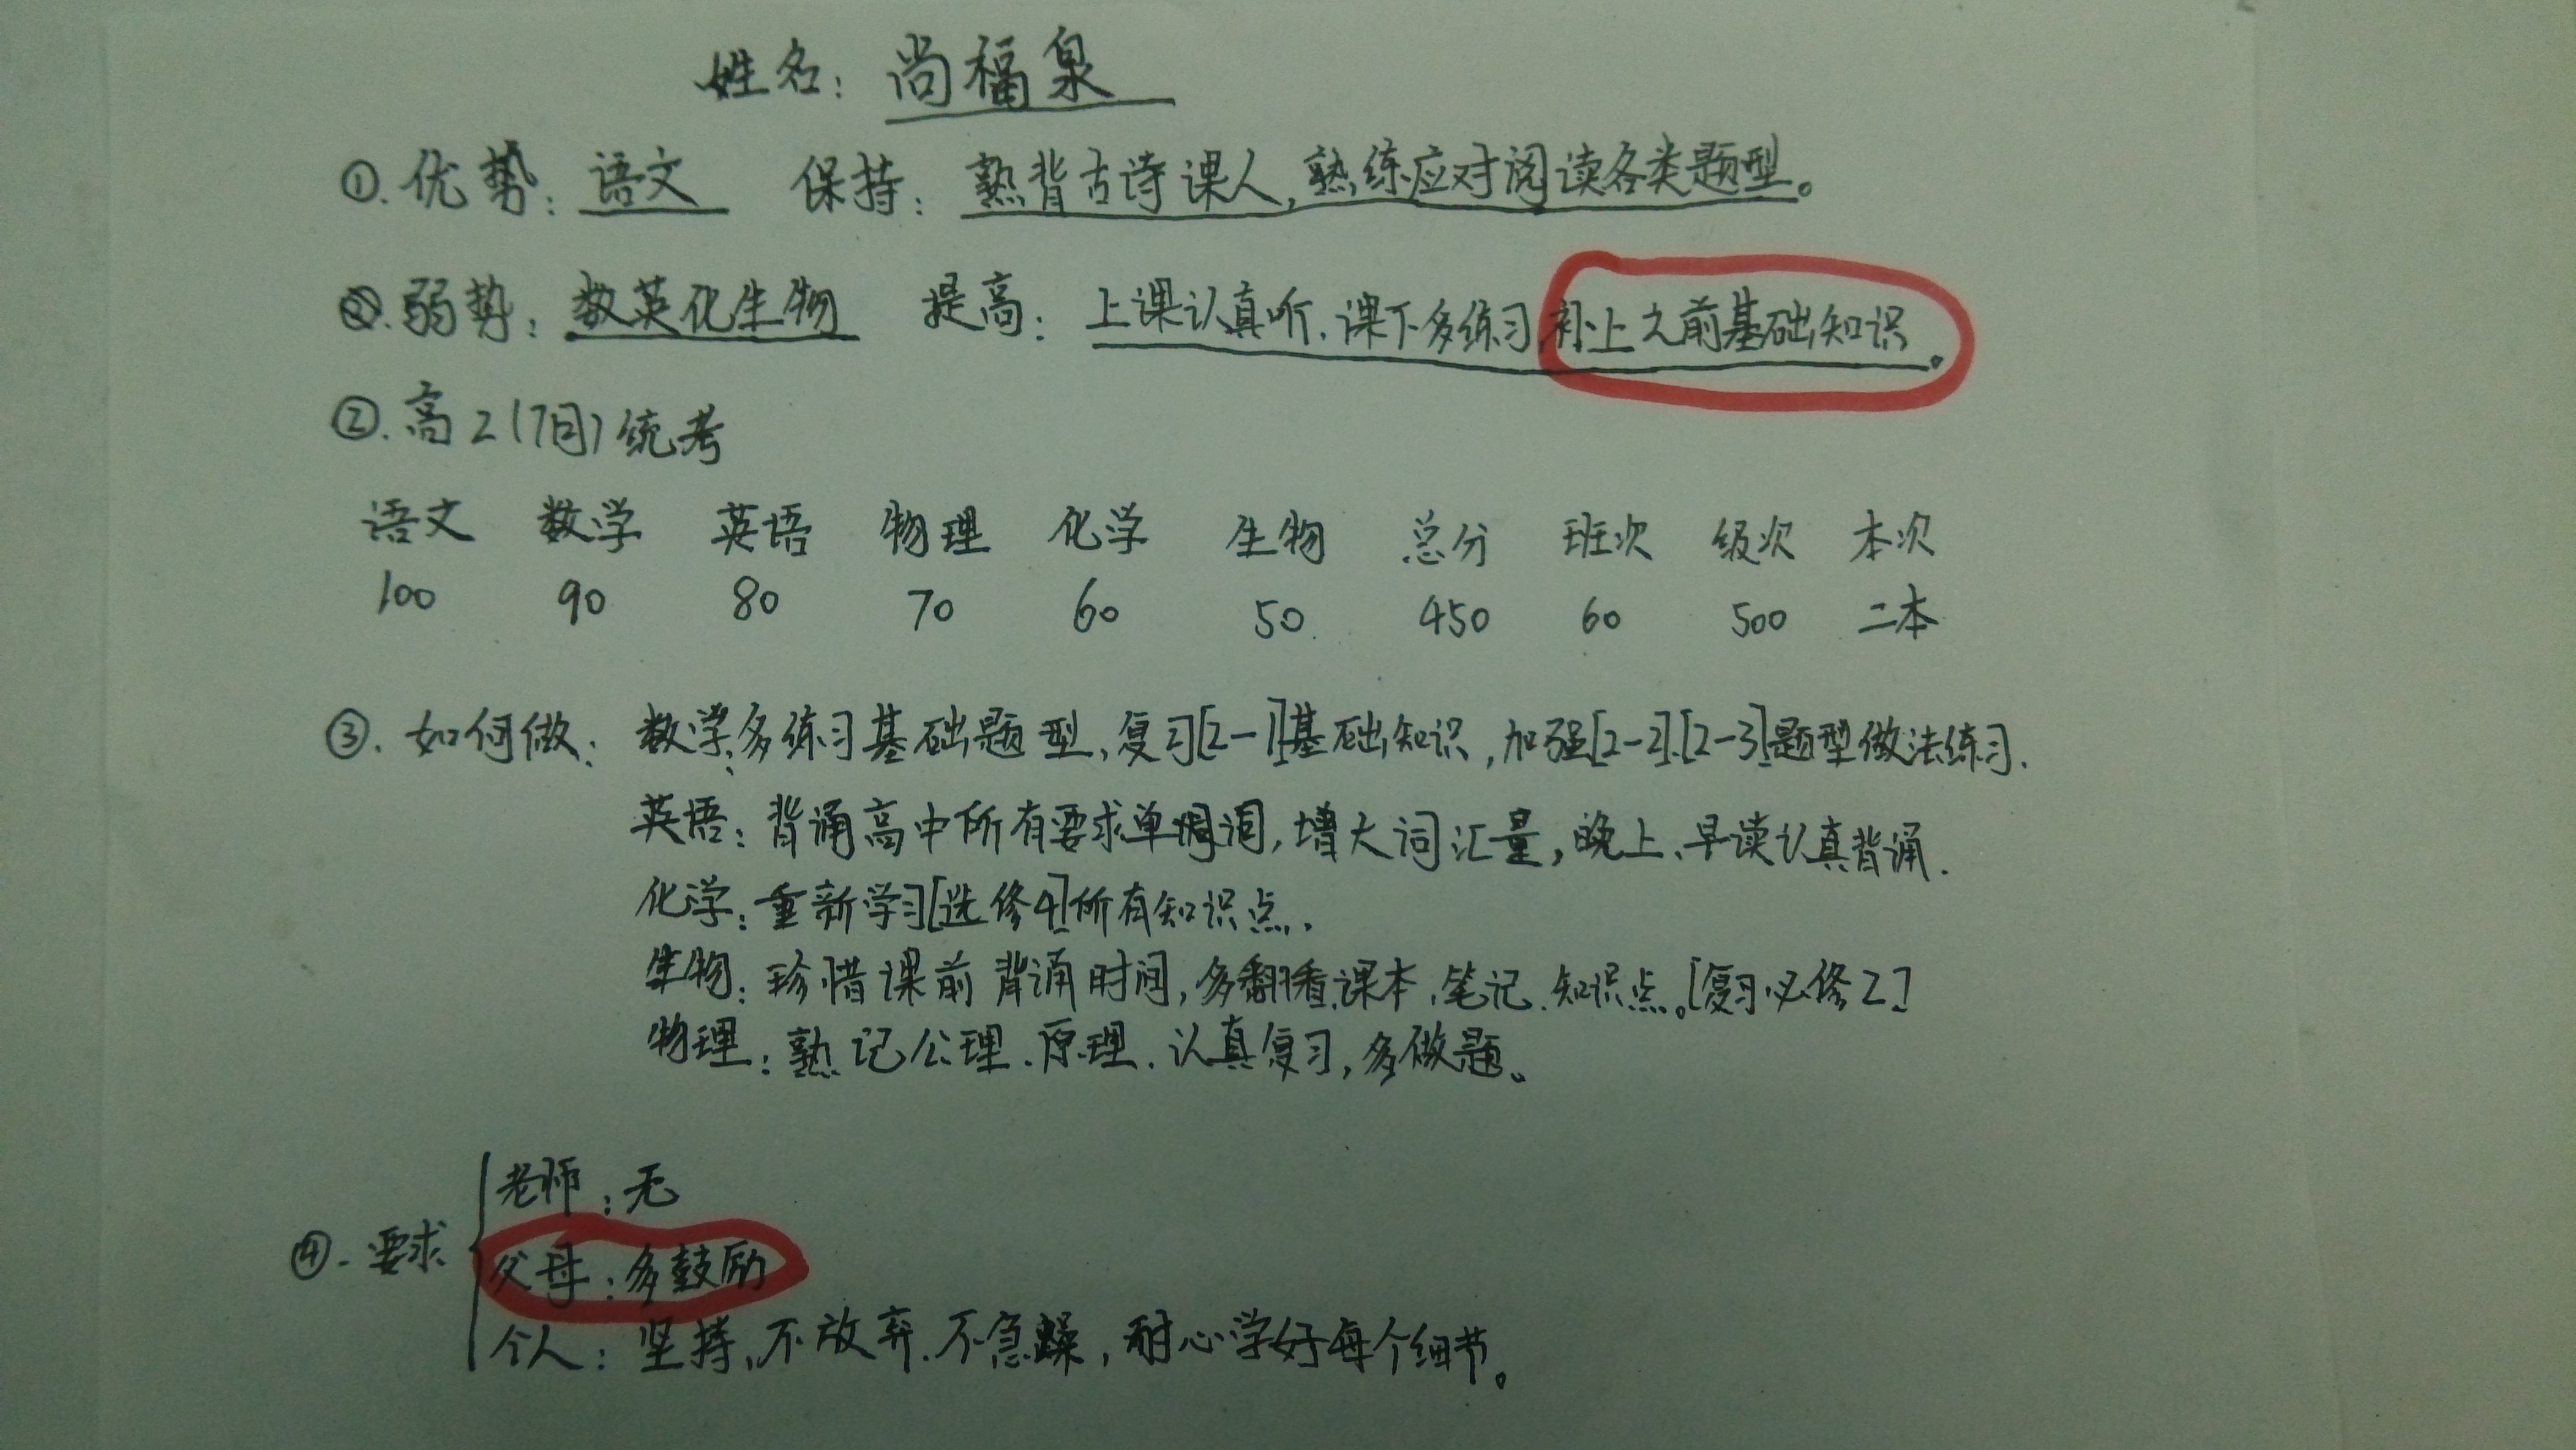 姓名：尚福泉
①.优势：语文 保持：熟背古诗课人,熟练应对阅读各类题型。
弱势：数英化生物 提高：上课认真听.课下多练习,补上之前基础知识。
②.高2(7月)统考
语文 数学 英语 物理 化学 生物 总分 班次 级次 本次
100 90 80 70 60 50 450 60 500 二本
③.如何做：数学:多练习基础题型、复习[2-1]基础知识,加强[2-2].[2-3]题型做法练习.
英语：背诵高中所有要求单词,增大词汇量,晚上、早读认真背诵.
化学：重新学习[选修4]所有知识点.
生物：珍惜课前背诵时间,多翻看课本、笔记.知识点。[复习必修2]
物理：熟记公理.原理.认真复习,多做题。
老师：无
④.要求 父母：多鼓励
个人：坚持、不放弃.不急躁,耐心学好每个细节。